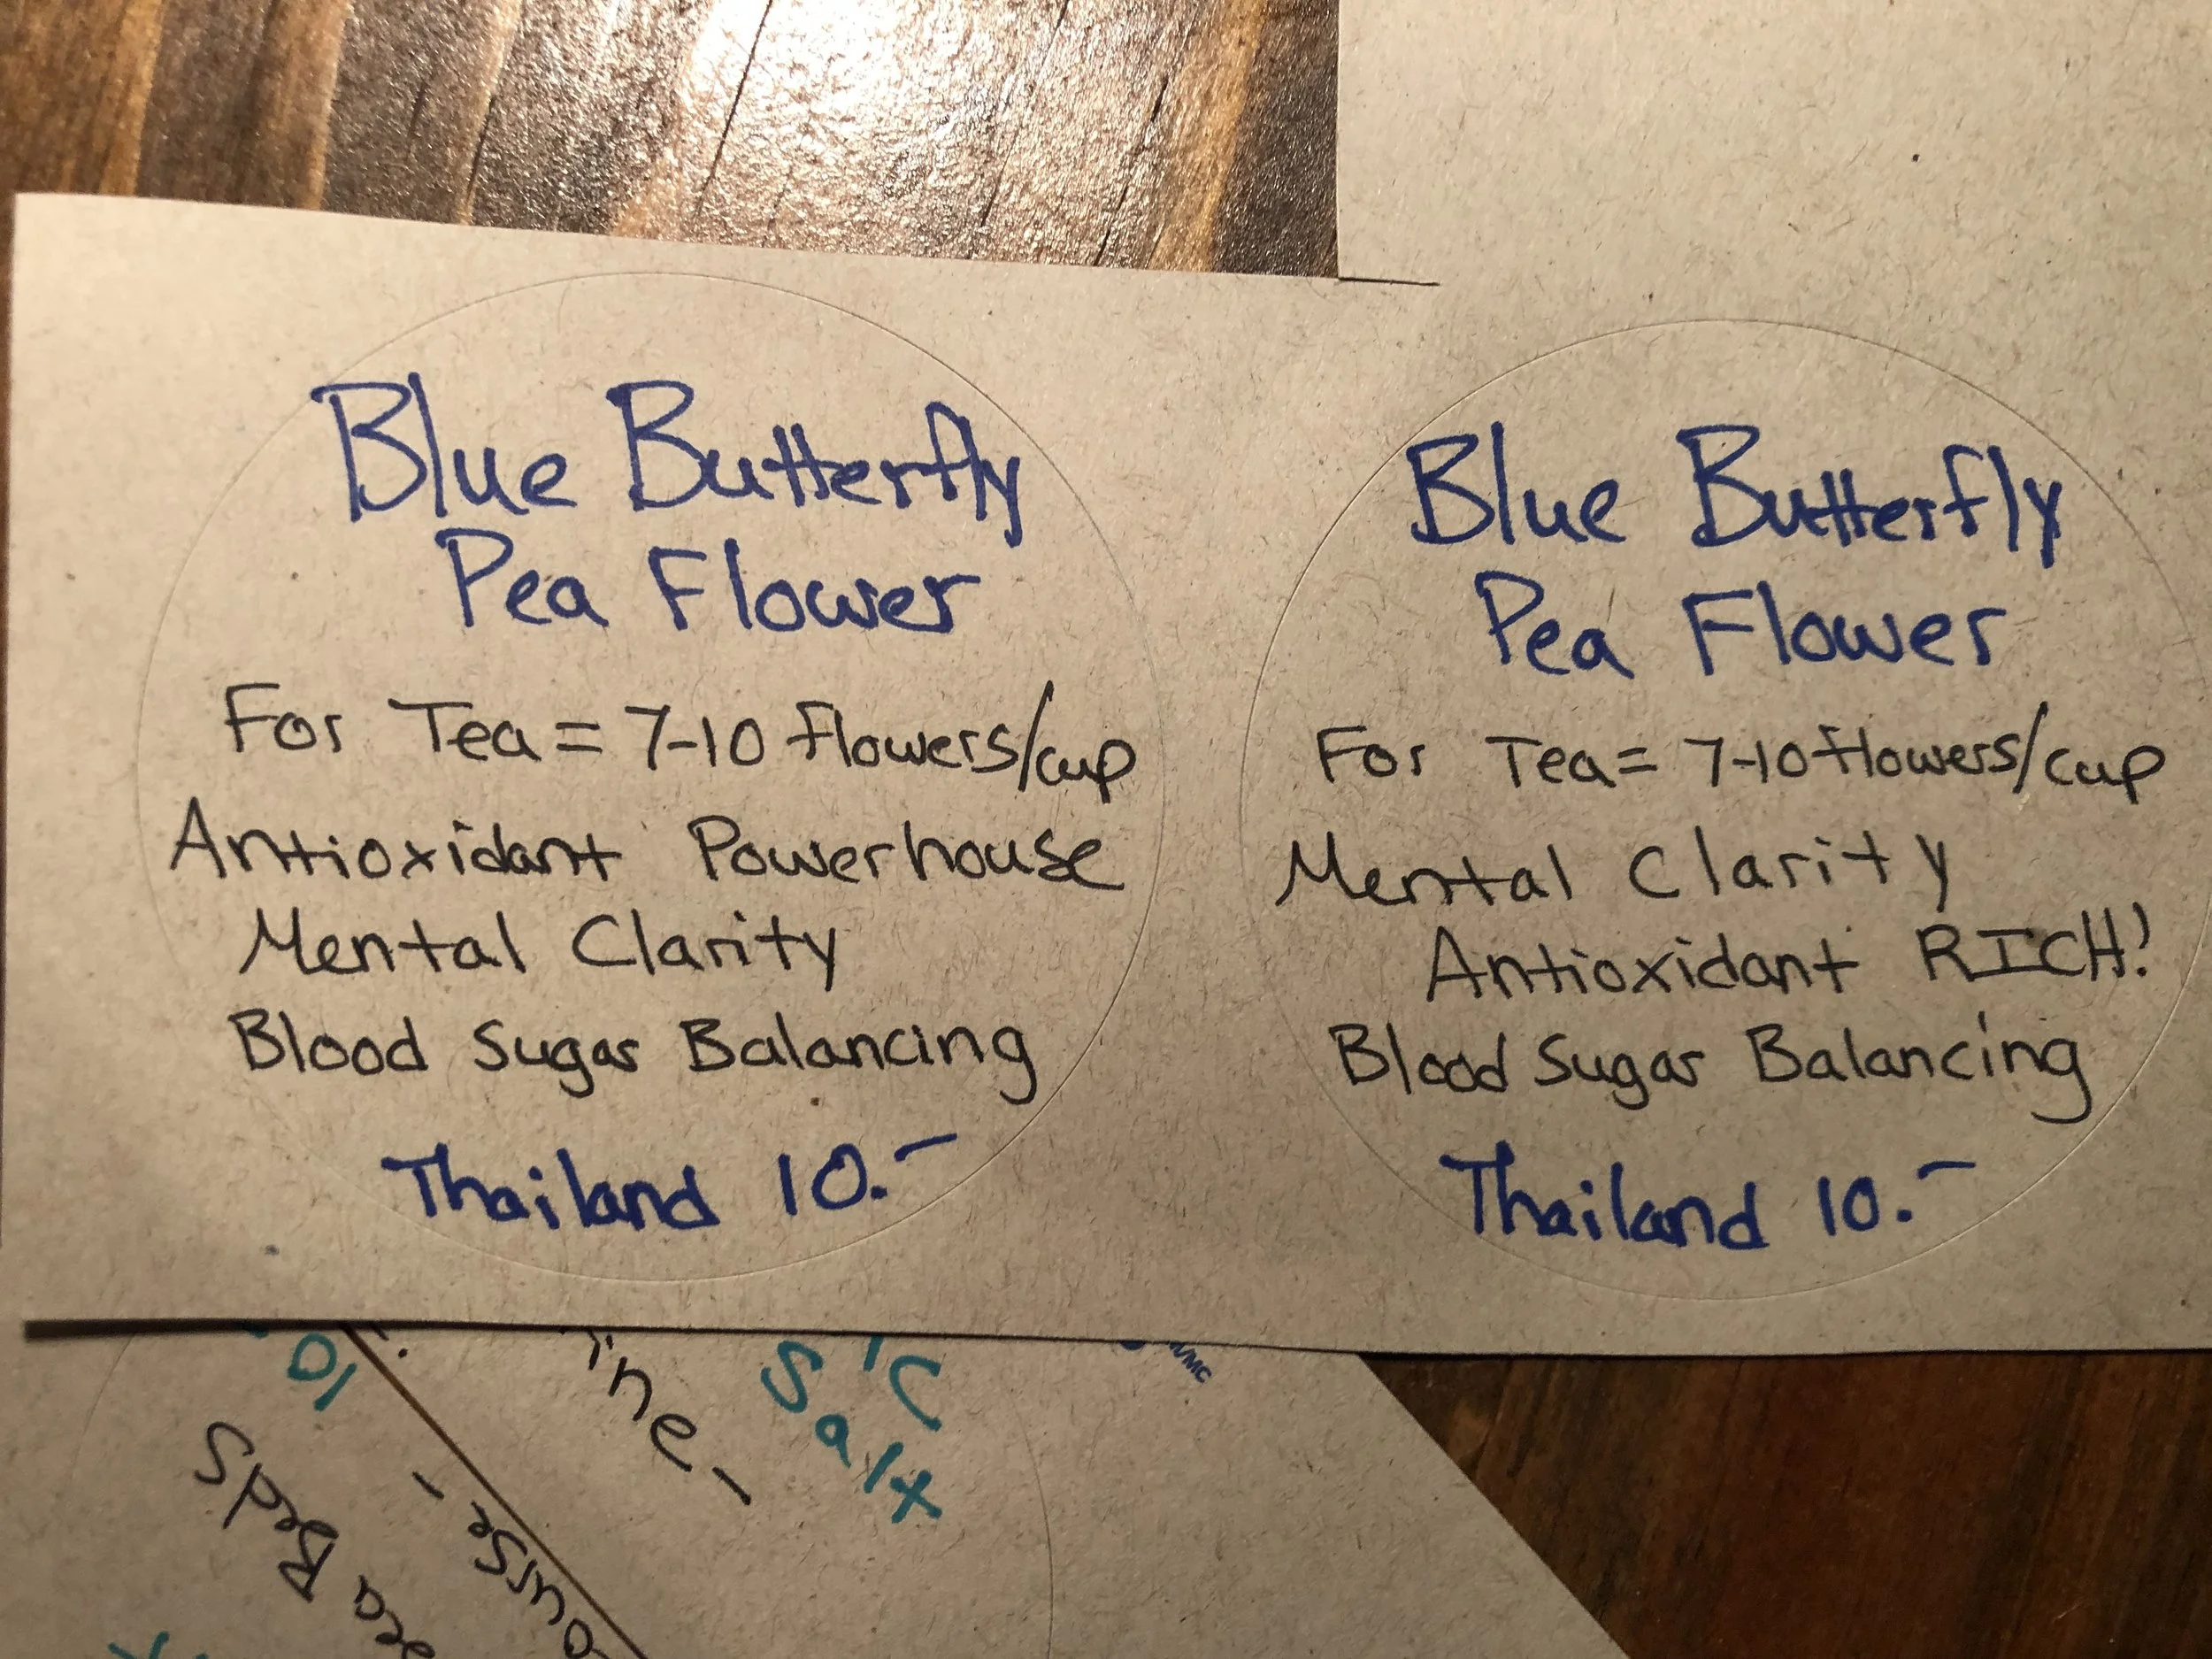 Blue Butterfly
Pea Flower
For Tea = 7-10 flowers/cup
Antioxidant Powerhouse
Mental Clarity
Blood Sugar Balancing
Thailand 10.-
Blue Butterfly
Pea Flower
For Tea = 7-10 flowers/cup
Mental Clarity
Antioxidant RICH!
Blood Sugar Balancing
Thailand 10.-
Salt
10
Beds